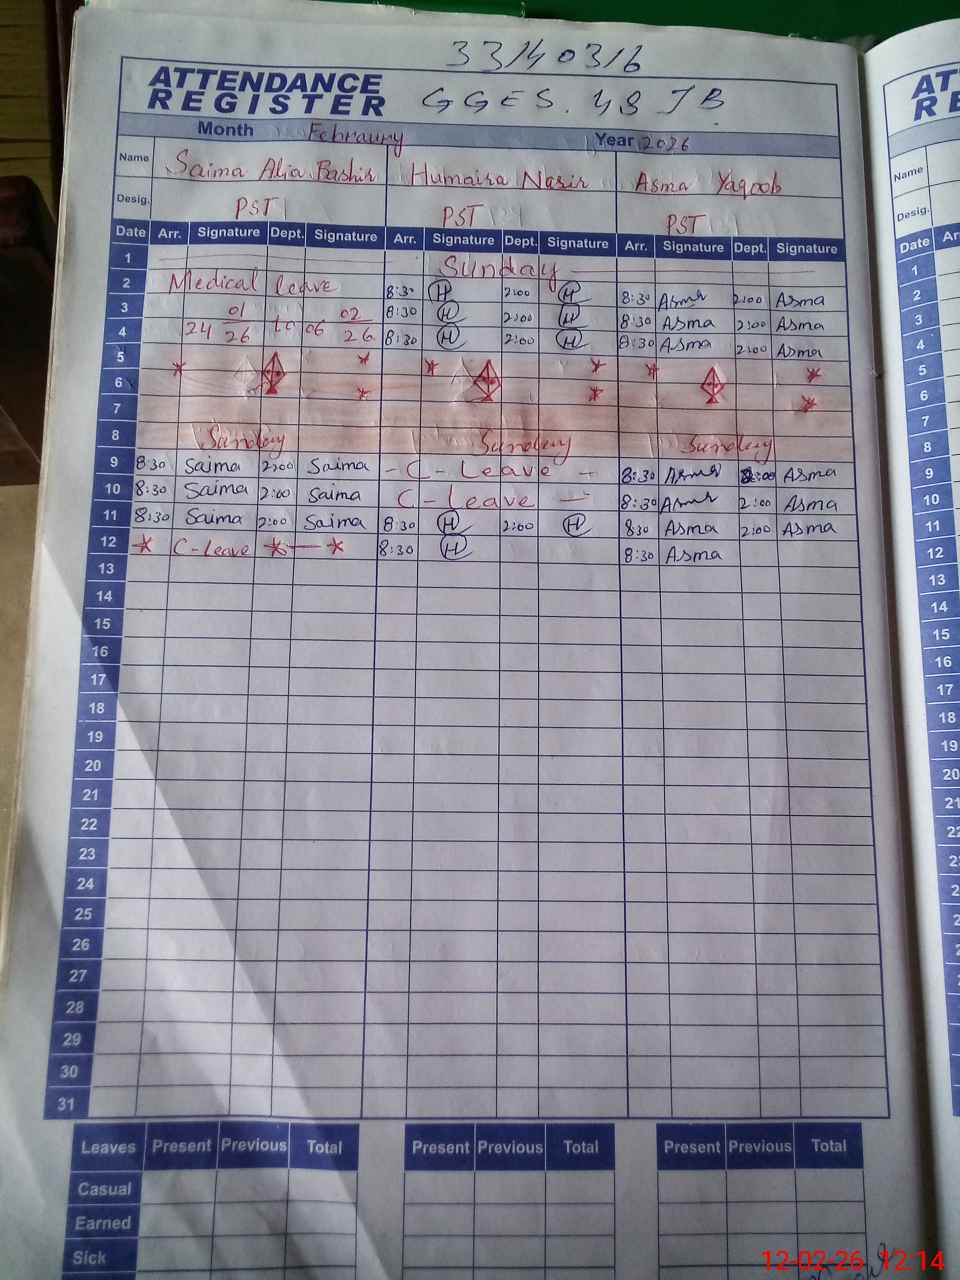 33140316
ATTENDANCE
REGISTER
GGES. 48 JB
Month Febraury Year 2026
Name Saima Alia Bashir Humaira Nasir Asma Yaqoob
Desig. PST PST PST
Date Arr. Signature Dept. Signature Arr. Signature Dept. Signature Arr. Signature Dept. Signature
1 Sunday
2 Medical leave 8:30 H 2:00 H 8:30 Asma 2:00 Asma
3 01 02 8:30 H 2:00 H 8:30 Asma 2:00 Asma
4 24 26 to 06 26 8:30 H 2:00 H 8:30 Asma 2:00 Asma
5
6
7
8 Sunday Sunday Sunday
9 8:30 Saima 2:00 Saima - C - Leave - 8:30 Asma 2:00 Asma
10 8:30 Saima 2:00 Saima C - leave - 8:30 Asma 2:00 Asma
11 8:30 Saima 2:00 Saima 8:30 H 2:00 H 830 Asma 2:00 Asma
12 * C-Leave * — * 8:30 H 8:30 Asma
13
14
15
16
17
18
19
20
21
22
23
24
25
26
27
28
29
30
31
Leaves Present Previous Total Present Previous Total Present Previous Total
Casual
Earned
Sick
Name
Desig.
Date
1
2
3
4
5
6
7
8
9
10
11
12
13
14
15
16
17
18
19
20
12-02-26 12:14